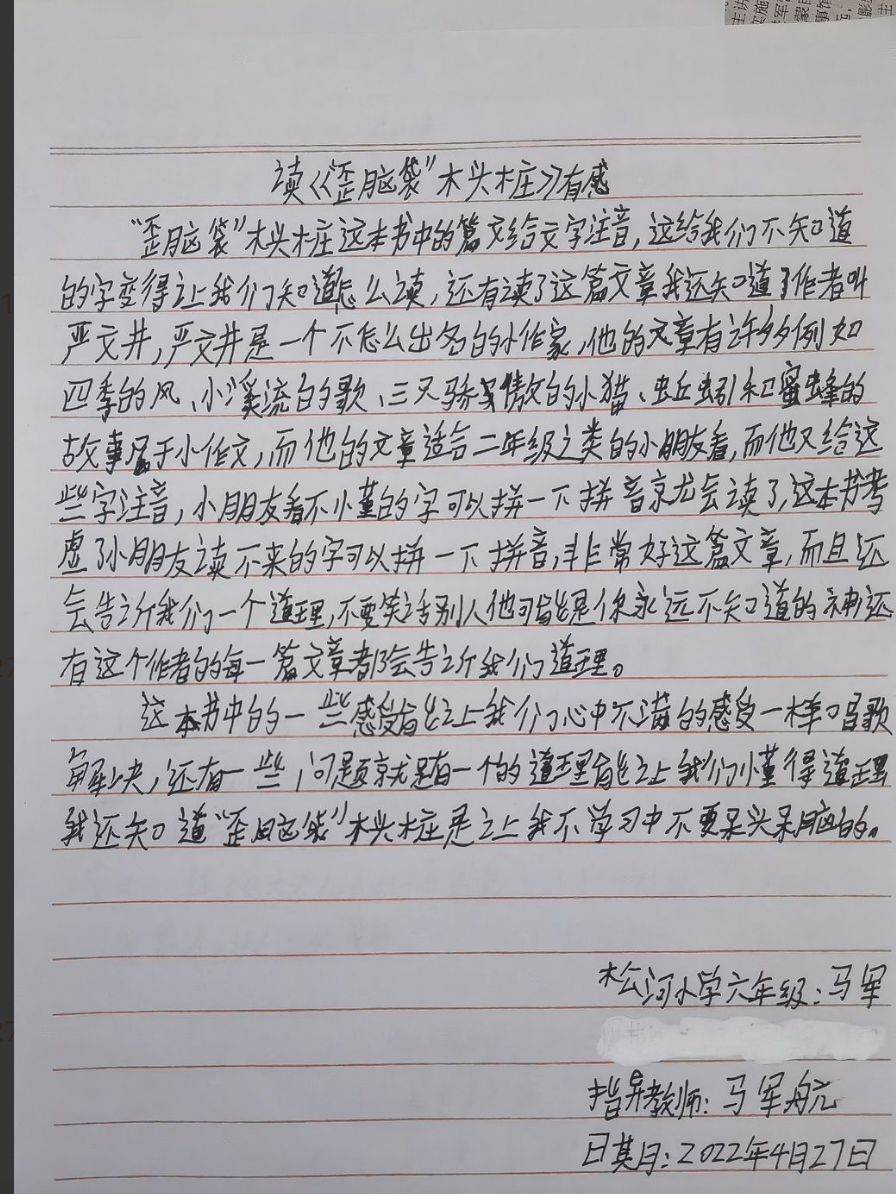 读《“歪脑袋”木头桩》有感
“歪脑袋”木头桩这本书中的篇文给文字注音，这给我们不知道
的字变得让我们知道怎么读，还有读了这篇文章我还知道了作者叫
严文井，严文井是一个不怎么出名的小作家，他的文章有许多多例如
四季的风、小溪流的歌、三只骄傲的小猫、蚯蚓和蜜蜂的
故事属于小作文，而他的文章适合二年级之类的小朋友看，而他又给这
些字注音，小朋友看不懂的字可以拼一下拼音就会读了，这本书考
虑了小朋友读不来的字可以拼一下拼音，非常好这篇文章，而且还
会告诉我们一个道理，不要笑话别人他可能是你永远不知道的神还
有这个作者的每一篇文章都会告诉我们道理。
这本书中的一些感受能让我们心中不满的感受一样唱歌
解决，还有一些，问题就是有一个的道理能让我们懂得道理
我还知道“歪脑袋”木头桩是让我不学习中不要呆头呆脑的。
松河小学六年级：马军
指导教师：马军航
日期：2022年4月27日